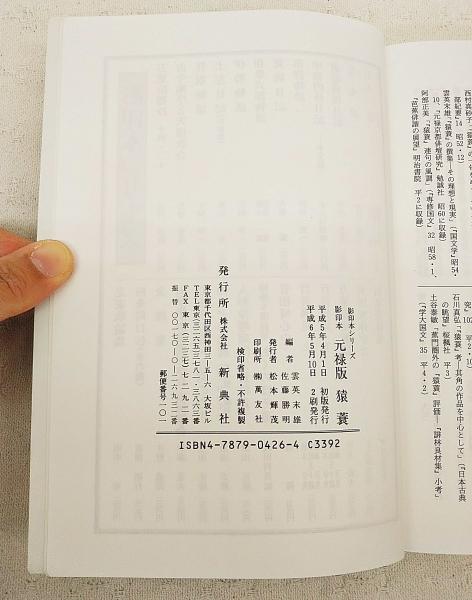 西村真砂子「『猿蓑』の
部紀要」14　昭52・12
雲英末雄「『猿蓑』の撰集―その理想と現実」（「国文学」昭54・
10、『元禄京都俳壇研究』勉誠社　昭60に収録）
阿部正美「『猿蓑』連句の風調」（「専修国文」32　昭58・1、
『芭蕉俳諧の展望』明治書院　平2に収録）
究」102　平2・10）
石川真弘「『猿蓑』考―其角の作品を中心として」（「日本古典
の眺望」桜楓社　平3）
土谷泰敏「蕉門圏外の『猿蓑』評価―『誹林良材集』小考」
（「学大国文」35　平4・2）
影印本シリーズ
影印本　元禄版　猿蓑
平成5年4月1日　初版発行
平成6年5月10日　2刷発行
編者　雲英末雄
佐藤勝明
発行者　松本輝茂
印刷所　㈱萬友社
検印省略・不許複製
発行所　株式会社　新典社
東京都千代田区西神田三―五―六　大坂ビル
TEL東京（三二六五）三七八一・三八六三番
FAX　東京（三二三七）七一二九・二一番
振替　〇〇一七〇―〇―二六九三二番
郵便番号一〇一
ISBN4-7879-0426-4 C3392